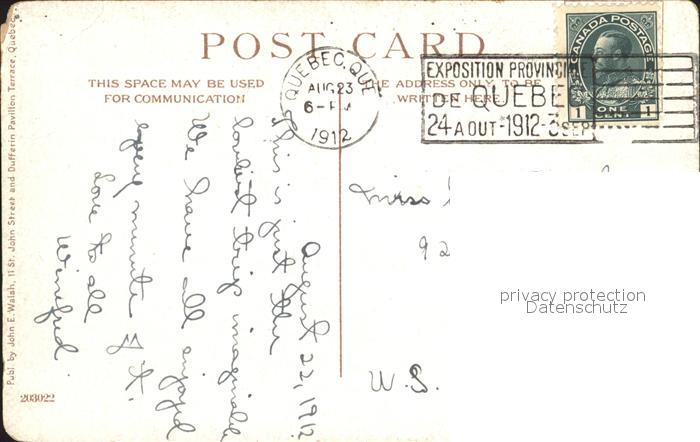 POST CARD
THIS SPACE MAY BE USED
FOR COMMUNICATION
THE ADDRESS ONLY TO BE
WRITTEN HERE.
QUEBEC, QUE.
AUG 23
6-PM
1912
EXPOSITION PROVINCI
DE QUEBE
24 AOUT-1912-3 SEP
CANADA POSTAGE
1 ONE CENT 1
August 22, 1912
This is just the
loveliest trip imaginable
We have all enjoyed
every minute of it.
Love to all
Winifred.
Miss
92
W.S.
privacy protection
Datenschutz
Publ. by John E. Walsh, 11 St. John Street and Dufferin Pavillon Terrace, Quebec.
203022